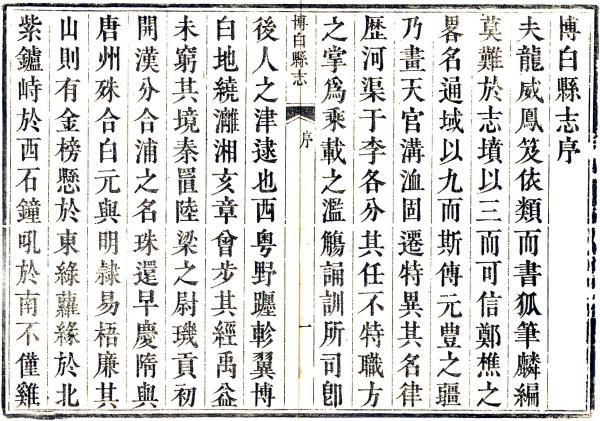 博白縣志序
夫龍威鳳笈依類而書狐筆麟編
莫難於志墳以三而可信鄭樵之
畧名通域以九而斯傅元豊之疆
乃畫天官溝洫固遷特異其名律
歴河渠于李各分其任不特職方
之掌爲乘載之濫觴誦訓所司卽
博白縣志
序
一
後人之津逮也西粤野躔軫翼博
白地繞灕湘亥章曾步其經禹益
未窮其境秦置陸梁之尉璣貢初
開漢分合浦之名珠還早慶隋與
唐州殊合白元與明隷易梧廉其
山則有金榜懸於東綠蘿緣於北
紫鑪峙於西石鐘吼於南不僅雞